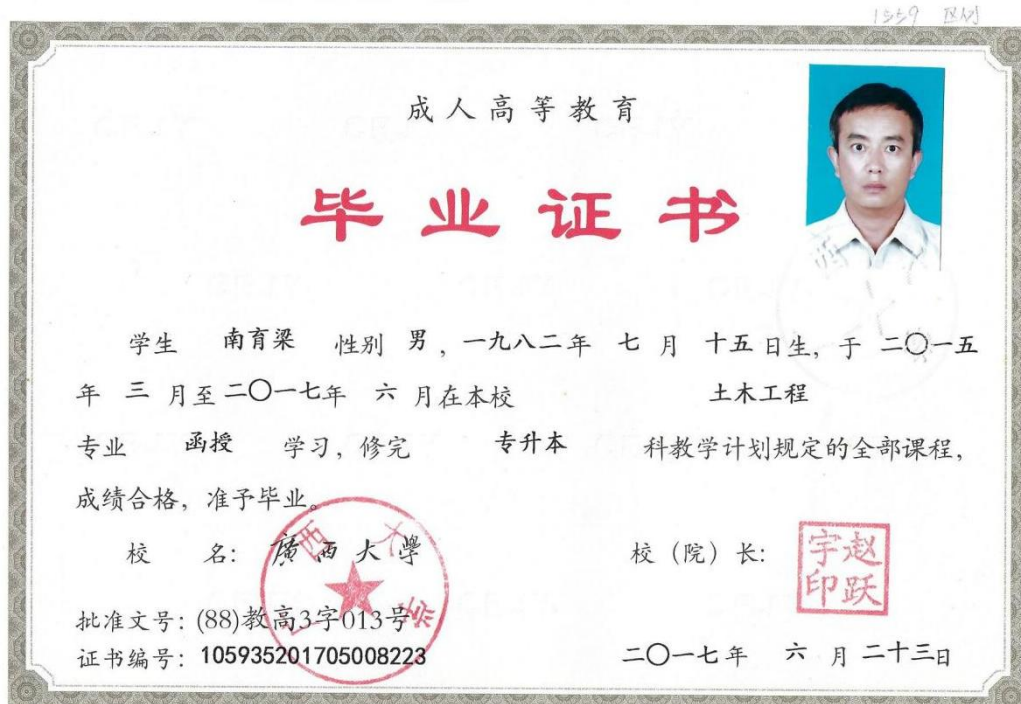 1559
成人高等教育
毕业证书
学生 南育梁 性别 男，一九八二年 七 月 十五日生，于 二〇一五
年 三 月至二〇一七年 六 月在本校 土木工程
专业 函授 学习，修完 专升本 科教学计划规定的全部课程，
成绩合格，准予毕业。
校 名：廣西大學
校（院）长：
赵跃宇印
批准文号：(88)教高3字013号
证书编号：105935201705008223
二〇一七年 六 月 二十三日
西大学